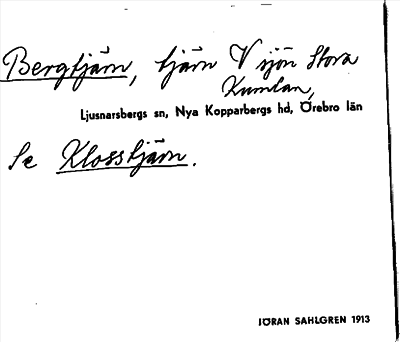 Bergtjärn, tjärn V sjön Stora
Kumlan,
Ljusnarsbergs sn, Nya Kopparbergs hd, Örebro län
Se Klosstjärn.
JÖRAN SAHLGREN 1913